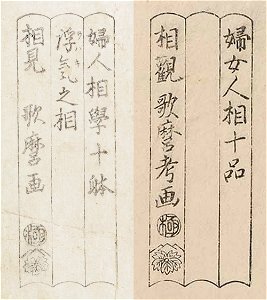 婦女人相十品
相觀歌麿考画
極
婦人相學十躰
浮気之相
相見 歌麿画
極